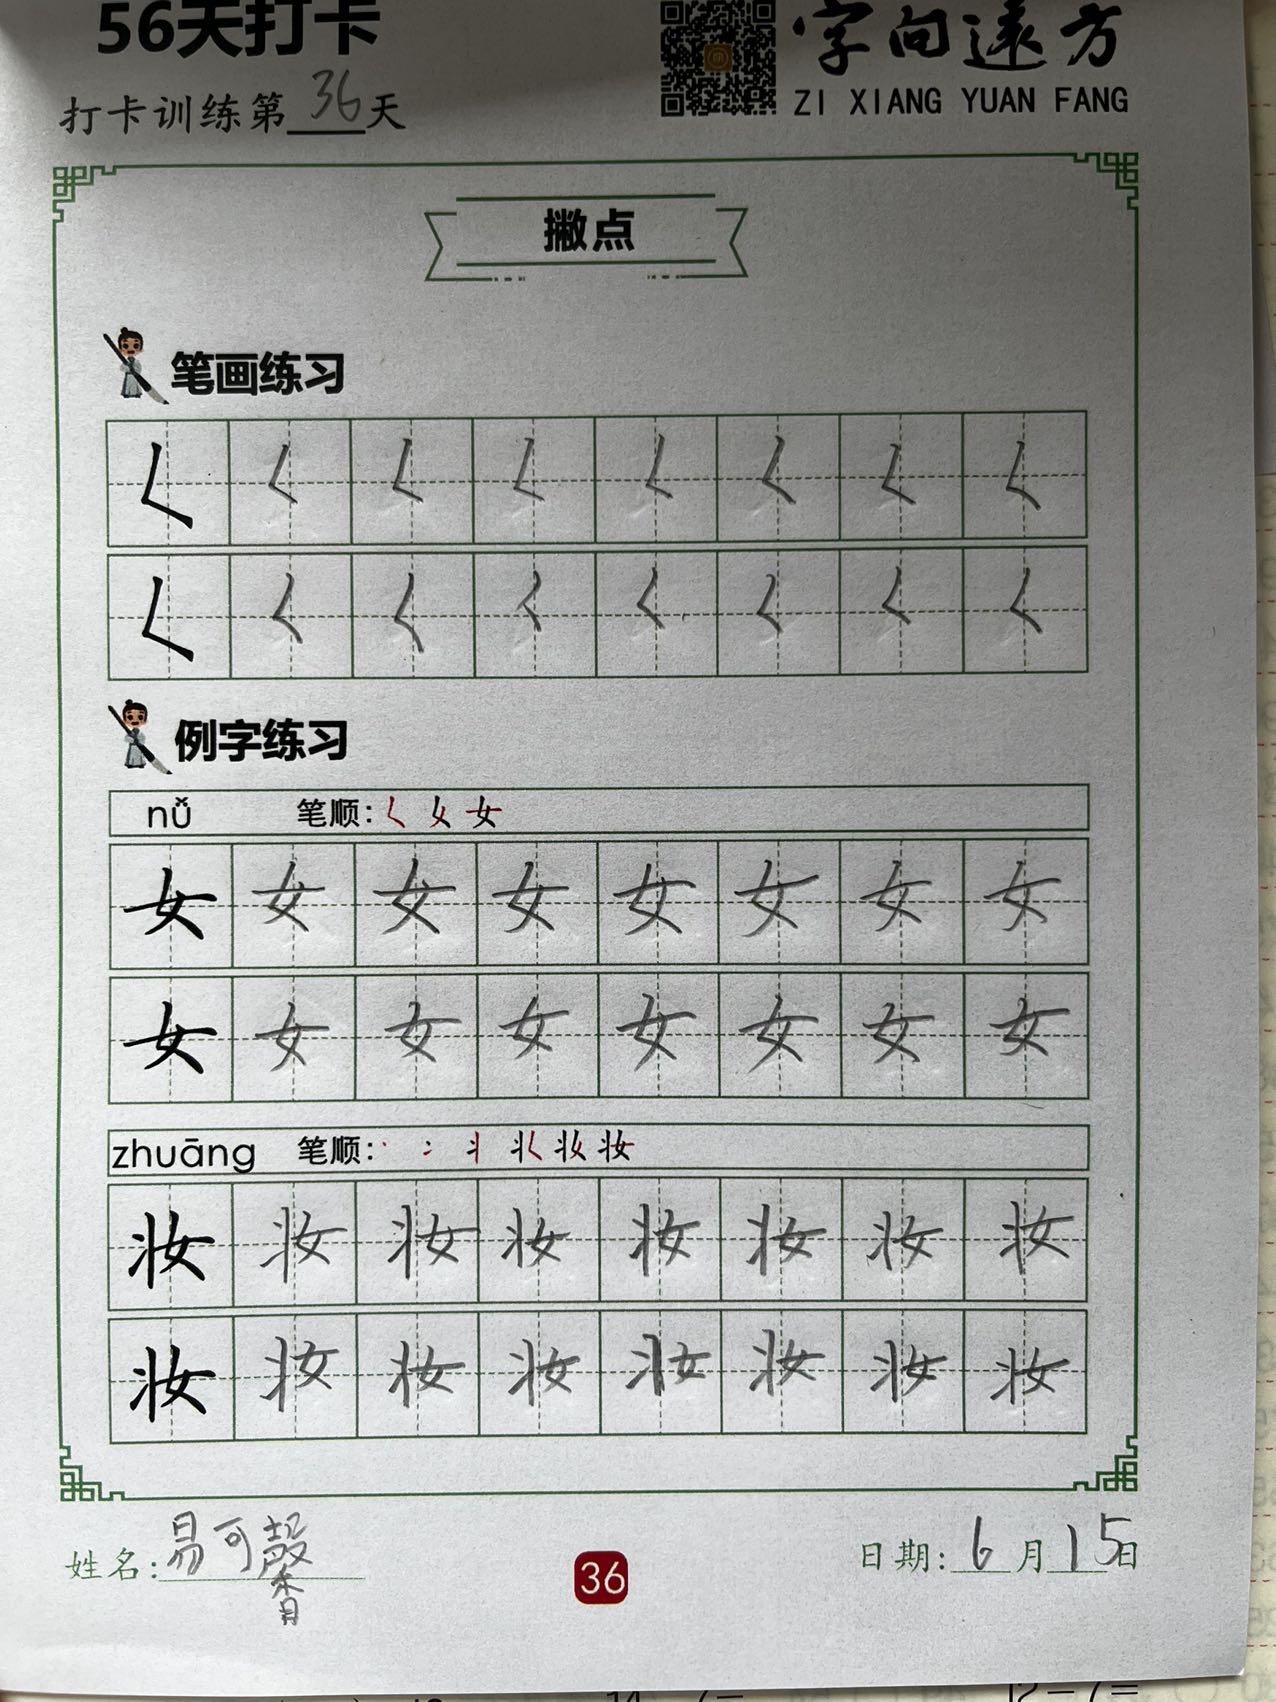 56天打卡
字向远方
打卡训练第36天
ZI XIANG YUAN FANG
撇点
笔画练习
例字练习
nǚ 笔顺: 女
女 女 女 女 女 女 女 女
女 女 女 女 女 女 女 女
zhuāng 笔顺: 妆
妆 妆 妆 妆 妆 妆 妆 妆
妆 妆 妆 妆 妆 妆 妆 妆
姓名:易可馨
36
日期:6月15日